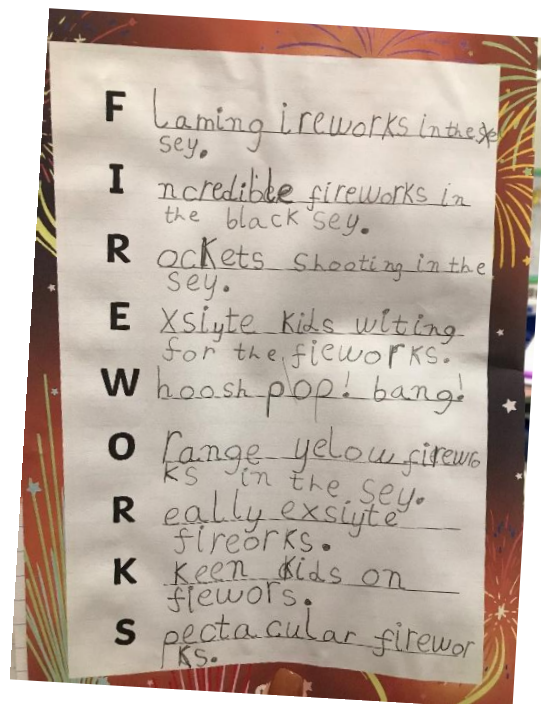 F Laming ireworks in the
sey.
I ncredible fireworks in
the black sey.
R ockets shooting in the
sey.
E xsiyte kids witing
for the fieworks.
W hoosh pop! bang!
O range yelow firewo
ks in the sey.
R eally exsiyte
fireorks.
K keen kids on
fiewors.
S pectacular firewor
ks.